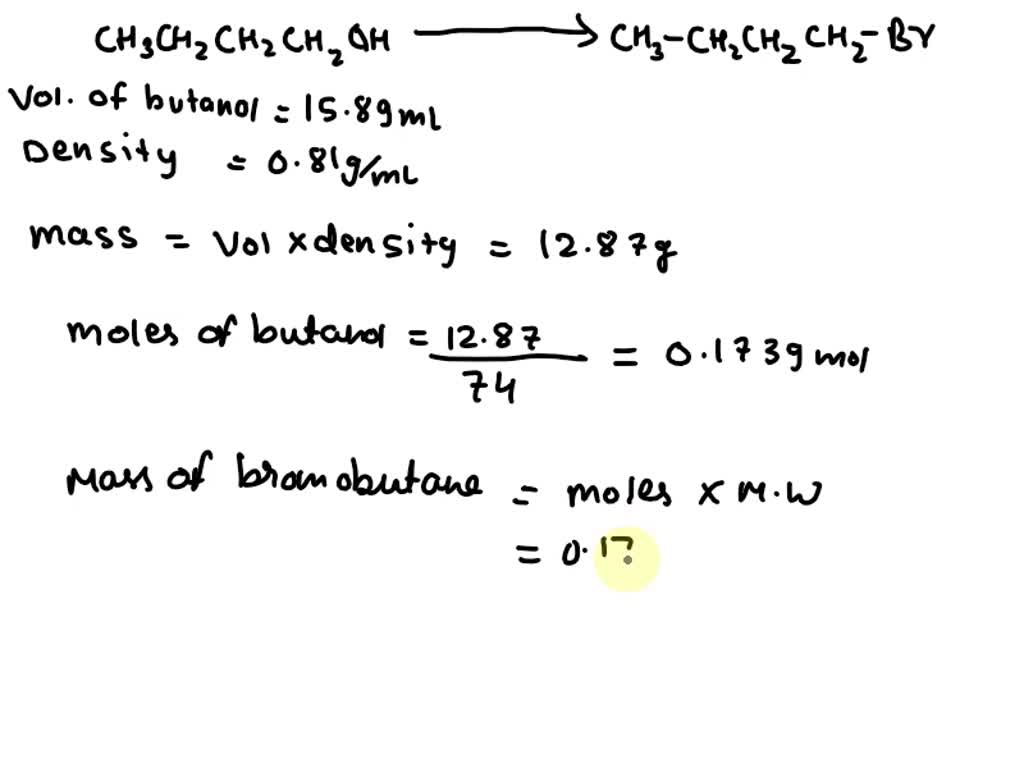 CH₃CH₂CH₂CH₂OH ⟶ CH₃-CH₂CH₂CH₂-Br
Vol. of butanol = 15.89 mL
Density = 0.81 g/mL
mass = Vol x density = 12.87 g
moles of butanol = 12.87/74 = 0.1739 mol
Mass of bromobutane = moles x M.W
= 0.17